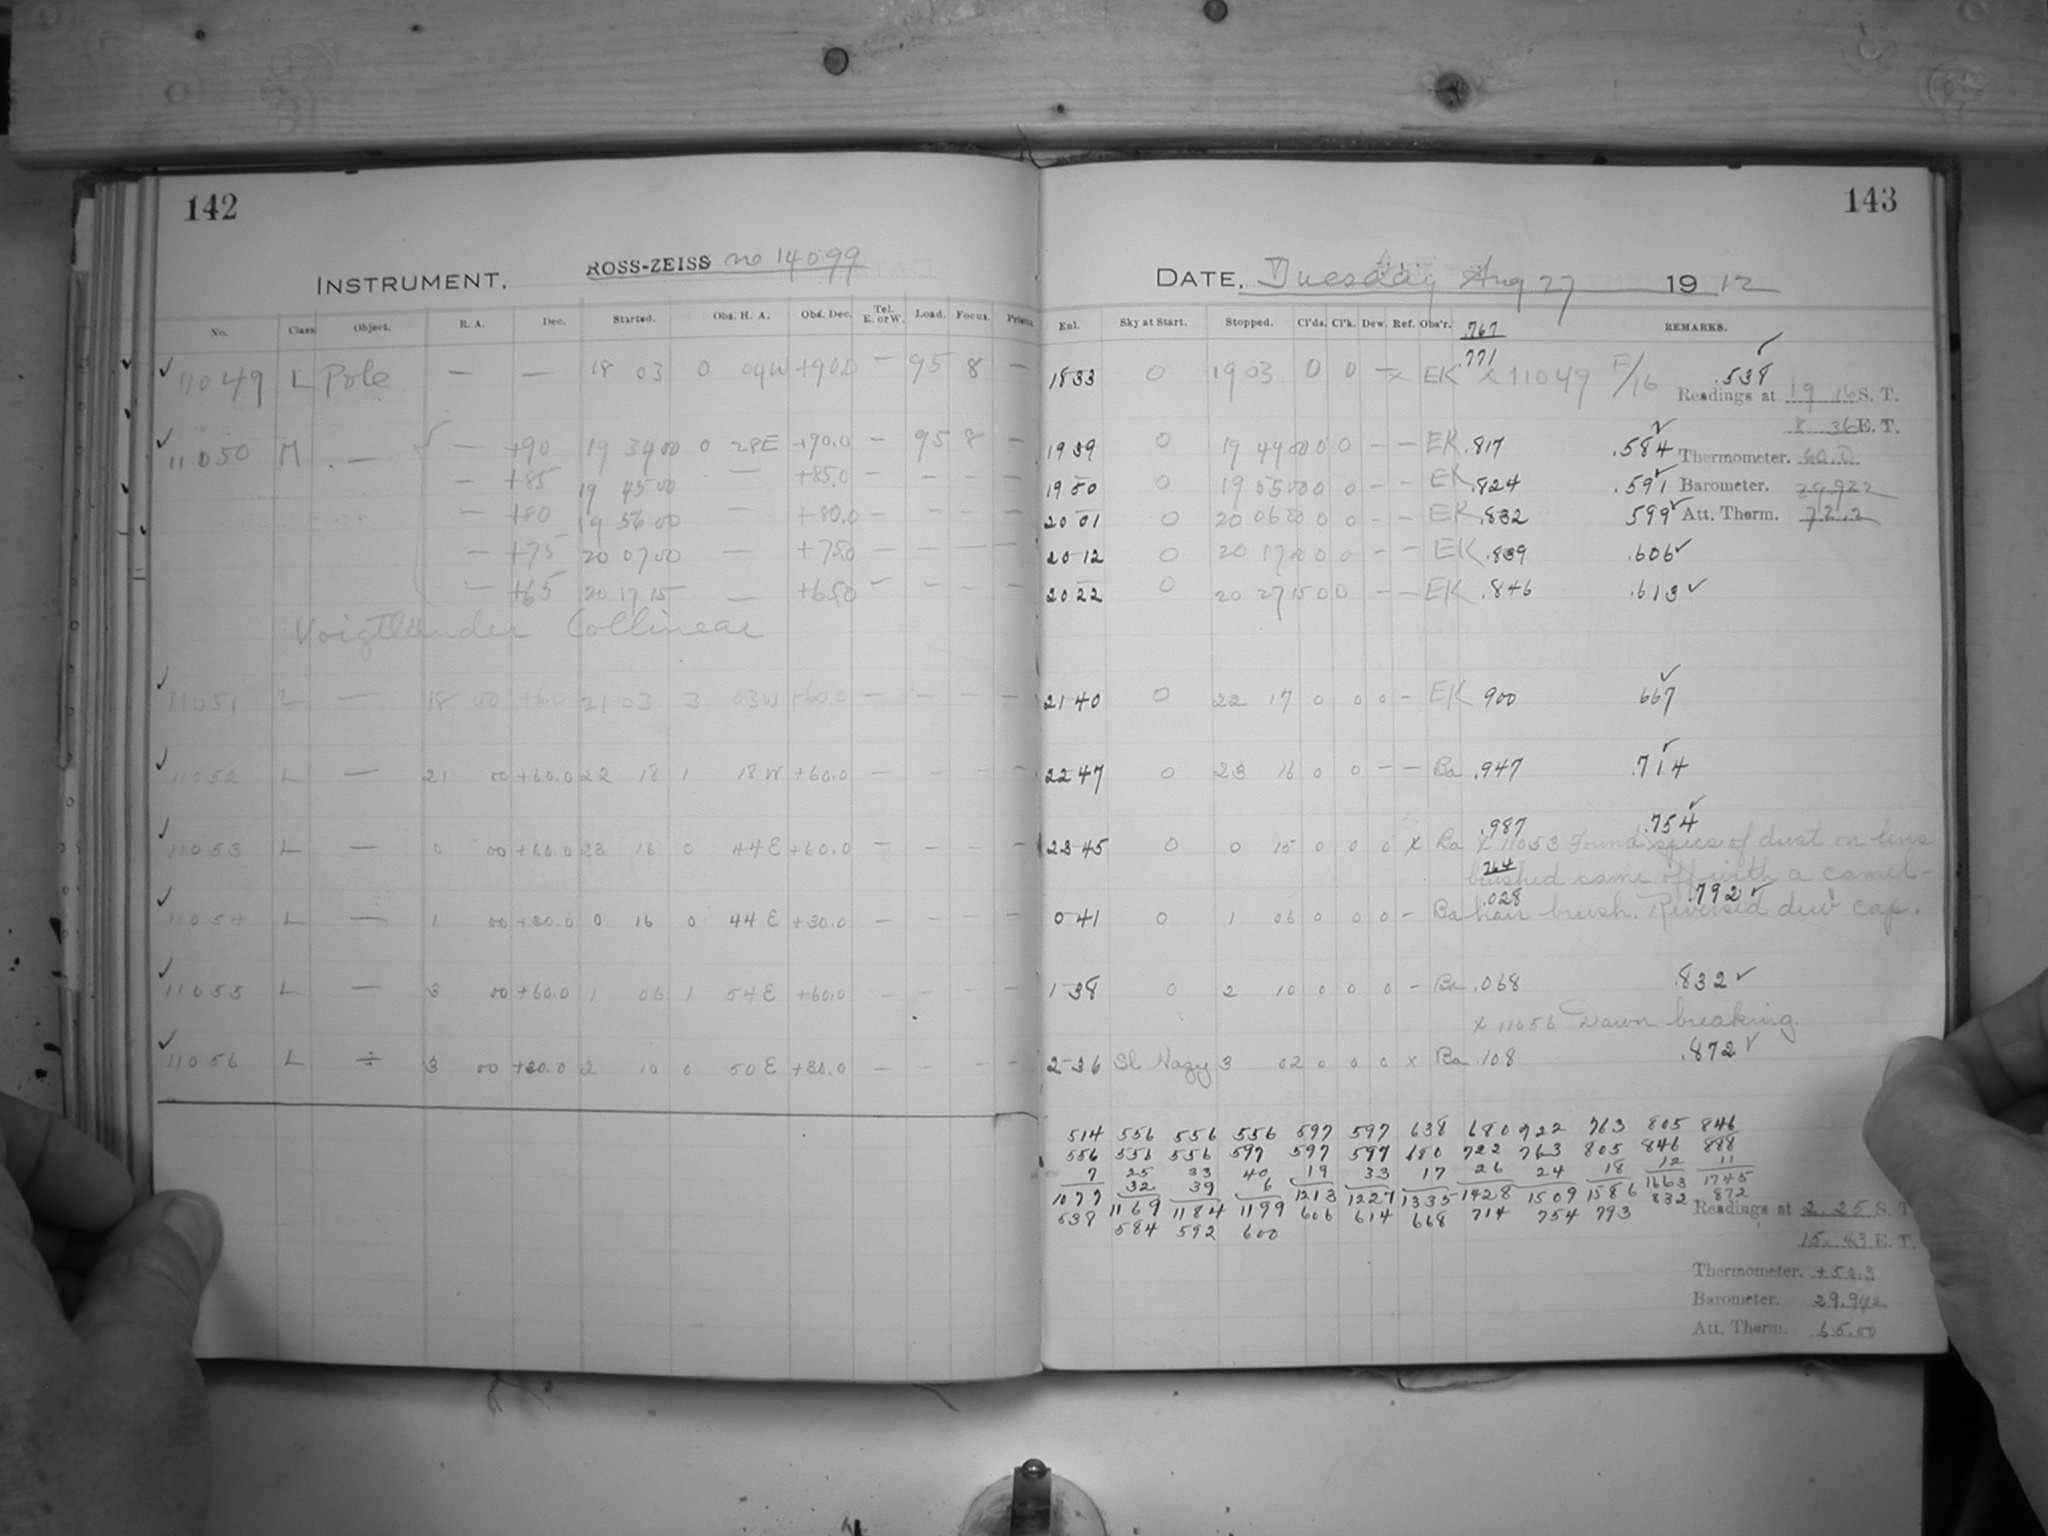 142
INSTRUMENT. ROSS-ZEISS no 14099
No. Class. Object. R. A. Dec. Started. Obs. H. A. Obs. Dec. Tel. E. or W. Load. Focus. Prisms.
11049 L Pole — — 18 03 0 04W +90.0 — 95 8 —
11050 M — — +90 19 39 00 0 28E +90.0 — 95 8 —
— +85 19 45 00 — +85.0 — — — —
— +80 19 56 00 — +80.0 — — — —
— +75 20 07 00 — +75.0 — — — —
— +65 20 17 15 — +65.0 — — — —
Voigtlander Collinear
11051 L — 18 00 +60 21 03 3 03W +60.0 — — — —
11052 L — 21 00 +60.0 22 18 1 18W +60.0 — — — —
11053 L — 0 00 +60.0 23 16 0 44E +60.0 — — — —
11054 L — 1 00 +30.0 0 16 0 44E +30.0 — — — —
11055 L — 3 00 +60.0 1 06 1 54E +60.0 — — — —
11056 L ÷ 3 00 +30.0 2 10 0 50E +30.0 — — — —
143
DATE. Tuesday Aug 27 1912
Enl. Sky at Start. Stopped. Cl'ds. Cl'k. Dew. Ref. Obs'r. .767 REMARKS.
.771
1833 0 19 03 0 0 — x EK x 11049 F/16 .538
Readings at 19 16 S. T.
8 36 E. T.
1939 0 19 49 00 0 0 — — EK .817 .584
Thermometer. 60.0
1950 0 19 55 00 0 0 — — EK .824 .591
Barometer. 29.922
2001 0 20 06 00 0 0 — — EK .832 599
Att. Therm. 72.2
2012 0 20 17 00 0 0 — — EK .839 .606
2022 0 20 27 15 0 0 — — EK .846 .613
2140 0 22 17 0 0 0 — EK 900 667
2247 0 23 16 0 0 — — Ba .947 .714
.987 .754
2345 0 0 15 0 0 0 x Ba x 11053 Found specs of dust on lens
764
brushed same off with a camel-
.028 .792
041 0 1 06 0 0 0 — Ba hair brush. Reversed dew cap.
1-38 0 2 10 0 0 0 — Ba .068 .832
x 11056 Dawn breaking.
2-36 Sl Hazy 3 02 0 0 0 x Ba .108 .872
514 556 556 556 597 597 638 680 722 763 805 846
556 556 556 597 597 597 680 722 763 805 846 888
7 25 33 40 19 33 17 26 24 18 12 11
32 39 6
1077 1169 1184 1199 1213 1227 1335 1428 1509 1586 1663 1745
538 584 592 600 606 614 668 714 754 793 832 872
Readings at 2 25 S. T.
15 43 E. T.
Thermometer. +50.3
Barometer. 29.942
Att. Therm. 65.00